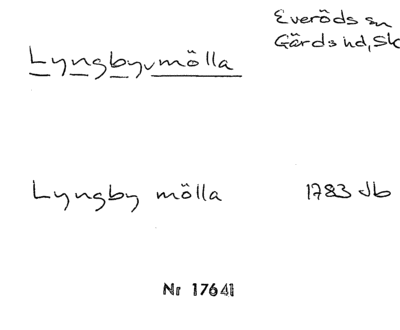 Everöds sn
Gärds hd, Sk
Lyngbyvmölla
Lyngby mölla 1783 Jb
Nr 17641